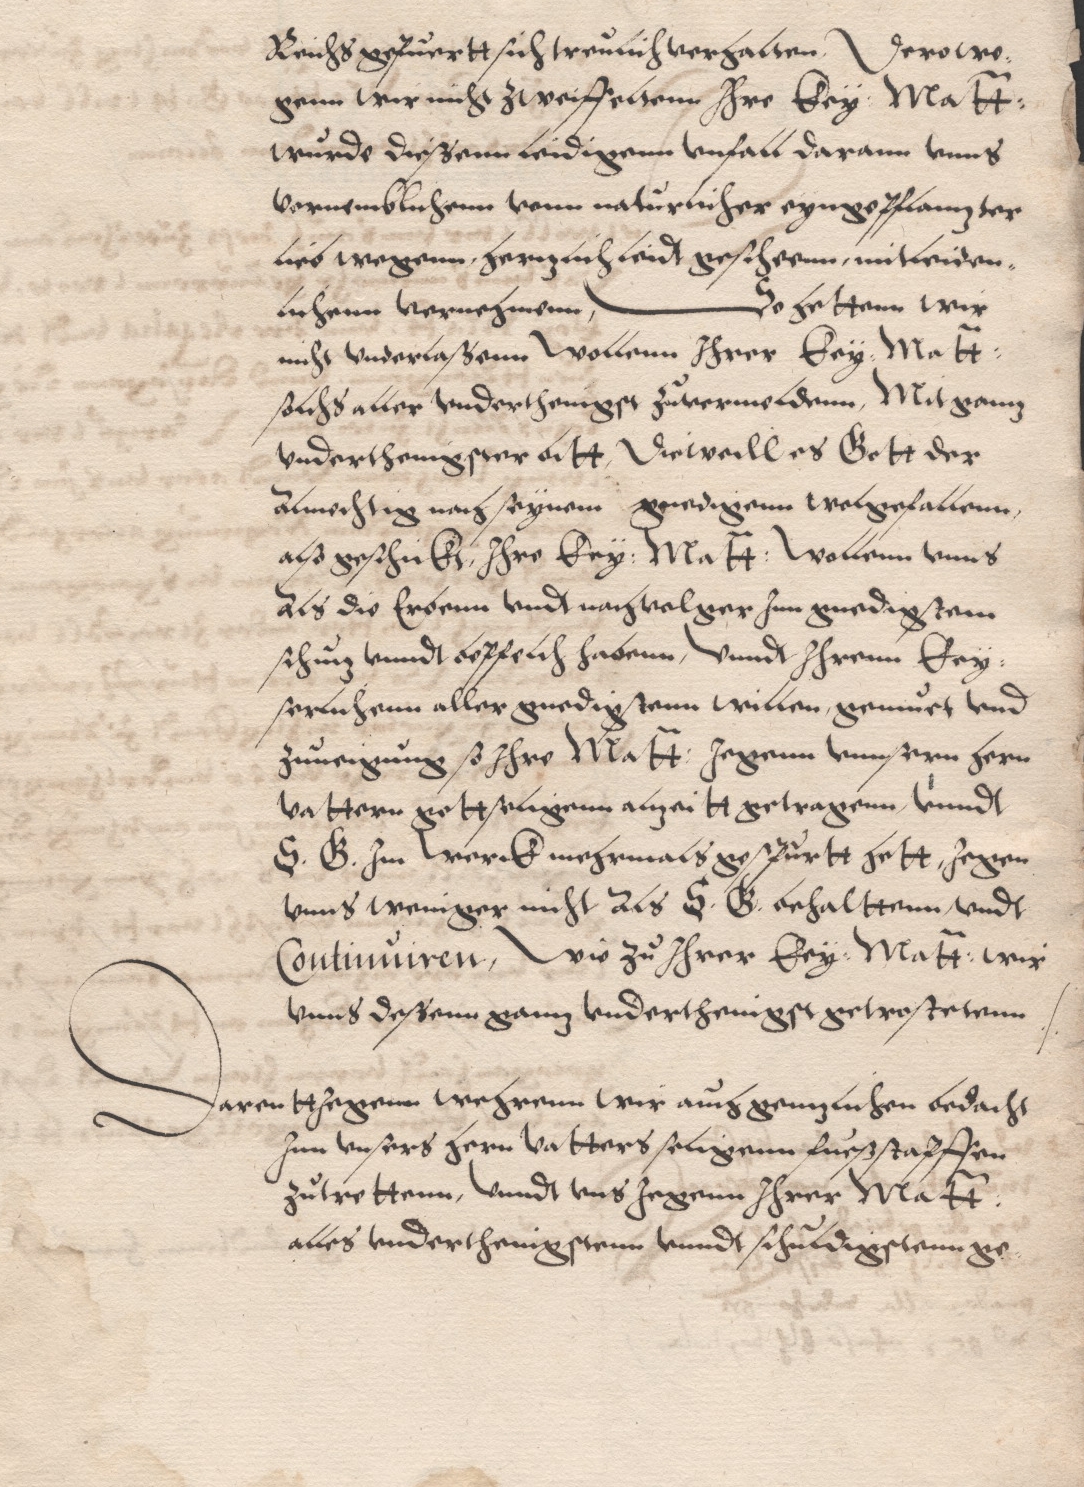 Reichs gespuertt sich treulich verhalten, Derowe-
genn wir nicht zweiffeltenn Ihre Key: Matt:
wurde diessenn leidigenn vnfall darann vnns
vornemblichenn vonn naturlicher eyngepflanzter
lieb wegenn, herzlich leidt gescheenn, mitleiden-
lichenn vernehmenn, So hettenn wir
nicht vnderlassenn wollenn Ihrer Key: Matt:
solchs aller vnderthenigst zuvermeldenn, Mit ganz
vnderthenigster bitt, Dieweill es Gott der
Almechtig nach seynem gnedigenn wolgefallenn,
also geschickt, Ihre Key: Matt: wollenn vnns
Als die Erbenn vndt nachvolger Inn gnedigstem
schutz vnndt bephelch habenn, vnndt Ihrenn Key-
serlichenn aller gnedigstenn willen, gemuet vnd
zuneigung so Ihre Matt: Jegenn vnnsern hern
vattern gottseligenn alzeitt getragenn vnndt
S. G. Im werck mehrmals gespurtt hett, Jegen
vnns weniger nicht Als S. G. behalttenn, vndt
Continuiren, wie zu Ihrer Key: Matt: wir
vnns dessenn ganz vnderthenigst getrostetenn ./.
Darenttjegenn wehrenn wir auch genzlichen bedacht
Inn vnsers hern vatters seligenn fuesstapffen
zutrettenn, vnndt vns Jegenn Ihrer Matt:
alles vnderthenigstenn vnndt schuldigstenn ge-